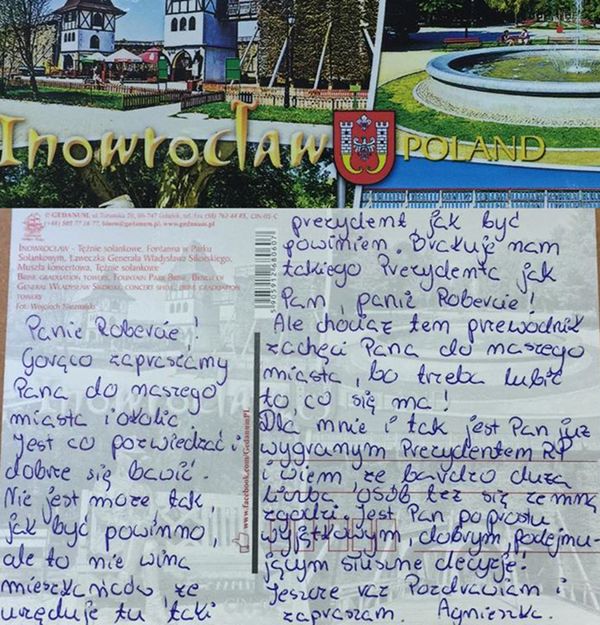 Inowrocław
POLAND
© GEDANUM,
www.gedanum.pl
Inowrocław - Tężnie solankowe, Fontanna w Parku
Solankowym, Ławeczka Generała Władysława Sikorskiego,
Muszla koncertowa, Tężnie solankowe
Brine graduation towers, Fountain Park Brine, Bench of
General Wladyslaw Sikorski, concert shell, brine graduation
towers
Fot. Wojciech
Panie Robercie!
Gorąco zapraszamy
Pana do naszego
miasta i okolic.
Jest co pozwiedzać i
dobrze się bawić.
Nie jest może tak
jak być powinno,
ale to nie wina
mieszkańców że
urzęduje tu taki
www.facebook.com/GedanumPL
5905912680607
prezydent, jak być
powinien. Brakuje nam
takiego Prezydenta jak
Pan, panie Robercie!
Ale chociaż ten przewodnik
zachęci Pana do naszego
miasta, bo trzeba lubić
to co się ma!
Dla mnie i tak jest Pan już
wygranym Prezydentem RP
i wiem, że bardzo duża
liczba osób też się ze mną
zgodzi. Jest Pan po prostu
wyjątkowym, dobrym, podejmu-
jącym słuszne decyzje!
Jeszcze raz Pozdrawiam i
zapraszam. Agnieszka.